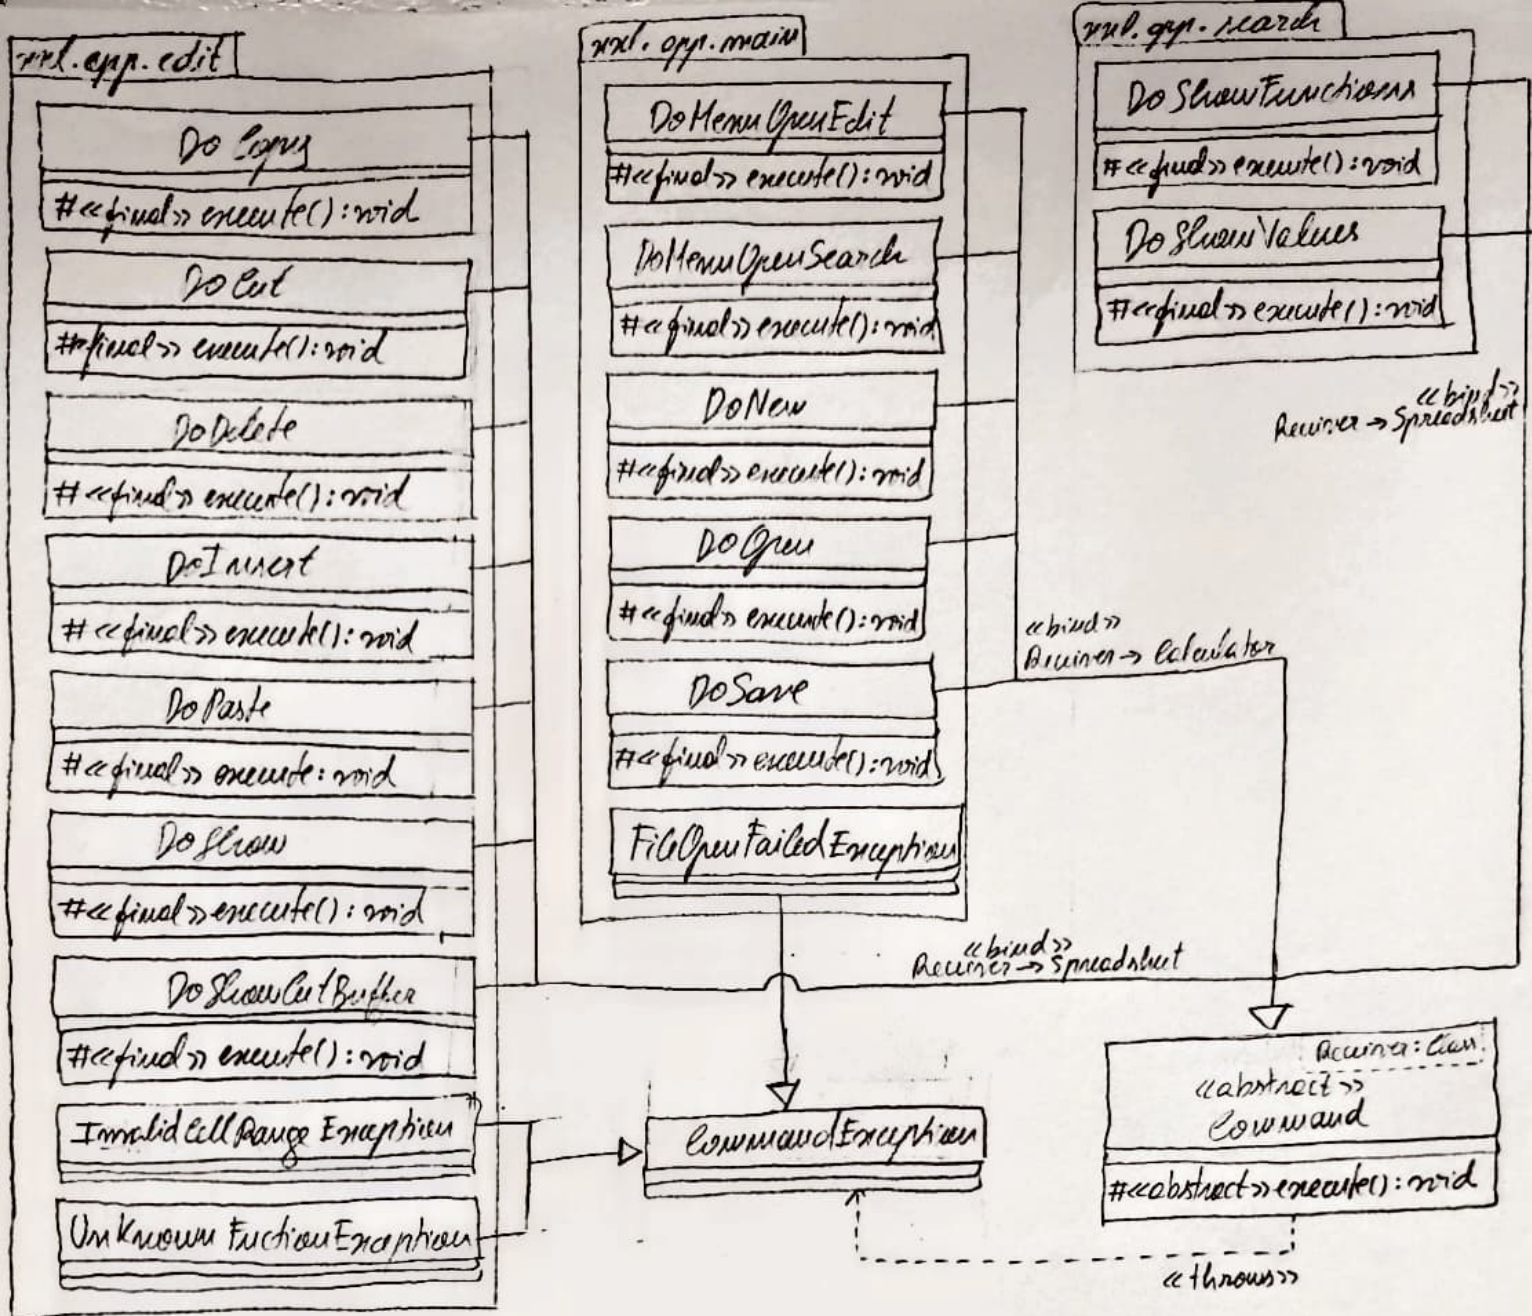 xxl.app.edit
DoCopy
#<<final>> execute(): void
DoCut
#<final>> execute(): void
DoDelete
#<<final>> execute(): void
DoInsert
#<<final>> execute(): void
DoPaste
#<<final>> execute: void
DoShow
#<<final>> execute(): void
DoShowCutBuffer
#<<final>> execute(): void
InvalidCellRangeException
UnknownFuctionException
xxl.app.main
DoMenuOpenEdit
#<<final>> execute(): void
DoMenuOpenSearch
#<<final>> execute(): void
DoNew
#<<final>> execute(): void
DoOpen
#<<final>> execute(): void
DoSave
#<<final>> execute(): void
FileOpenFailedException
xxl.app.search
DoShowFunctions
#<<final>> execute(): void
DoShowValues
#<<final>> execute(): void
<<bind>>
Receiver → Spreadsheet
<<bind>>
Receiver → Calculator
<<bind>>
Receiver → Spreadsheet
CommandException
Receiver: Class
<<abstract>>
Command
#<<abstract>> execute(): void
<<throws>>